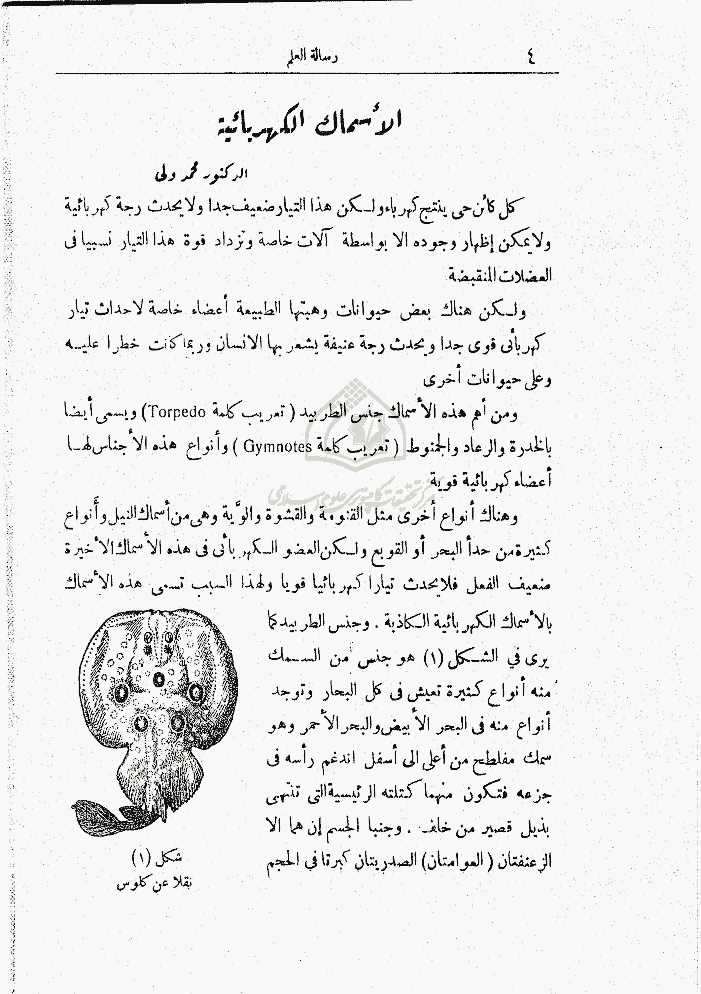 ٤
رسالة العلم
الأسماك الكهربائية
الدكتور محمد ولى
كل كائن حى ينتج كهرباء ولكن هذا التيار ضعيف جدا ولا يحدث رجة كهربائية
ولا يمكن إظهار وجوده الا بواسطة آلات خاصة وتزداد قوة هذا التيار نسبيا فى
العضلات المنقبضة
ولكن هناك بعض حيوانات وهبتها الطبيعة أعضاء خاصة لاحداث تيار
كهربائى قوى جدا ويحدث رجة عنيفة يشعر بها الانسان وربما كانت خطرا عليه
وعلى حيوانات أخرى
ومن أهم هذه الأسماك جنس الطربيد ( تعريب كلمة Torpedo) ويسمى أيضا
بالخدرة والرعاد والجمنوط ( تعريب كلمة Gymnotes ) وأنواع هذه الأجناس لها
أعضاء كهربائية قوية
وهناك أنواع أخرى مثل القنومة والقشوة والوأية وهى من أسماك النيل وأنواع
كثيرة من حدأ البحر أو القوبع ولكن العضو الكهربائى فى هذه الأسماك الأخيرة
ضعيف الفعل فلا يحدث تيارا كهربائيا قويا ولهذا السبب تسمى هذه الأسماك
بالأسماك الكهربائية الكاذبة . وجنس الطربيد كما
يرى في الشكل (١) هو جنس من السمك
منه أنواع كثيرة تعيش فى كل البحار وتوجد
أنواع منه فى البحر الأبيض والبحر الأحمر وهو
سمك مفلطح من أعلى الى أسفل اندغم رأسه فى
جزعه فتكون منهما كتلته الرئيسية التى تنتهى
بذيل قصير من خلف . وجنبا الجسم إن هما الا
الزعنفتان ( العوامتان) الصدريتان كبرتا فى الحجم
شكل (١)
نقلا عن كلوس